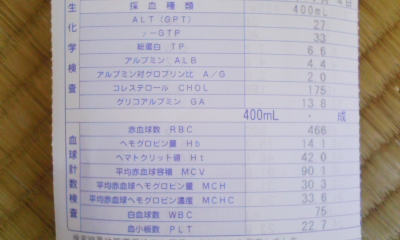 採血種類 400mL
ALT(GPT) 27
γ-GTP 33
総蛋白 TP 6.6
アルブミン ALB 4.4
アルブミン対グロブリン比 A/G 2.0
コレステロール CHOL 175
グリコアルブミン GA 13.8
生化学検査
400mL ・ 成
赤血球数 RBC 466
ヘモグロビン量 Hb 14.1
ヘマトクリット値 Ht 42.0
平均赤血球容積 MCV 90.1
平均赤血球ヘモグロビン量 MCH 30.3
平均赤血球ヘモグロビン濃度 MCHC 33.6
白血球数 WBC 75
血小板数 PLT 22.7
血球計数検査